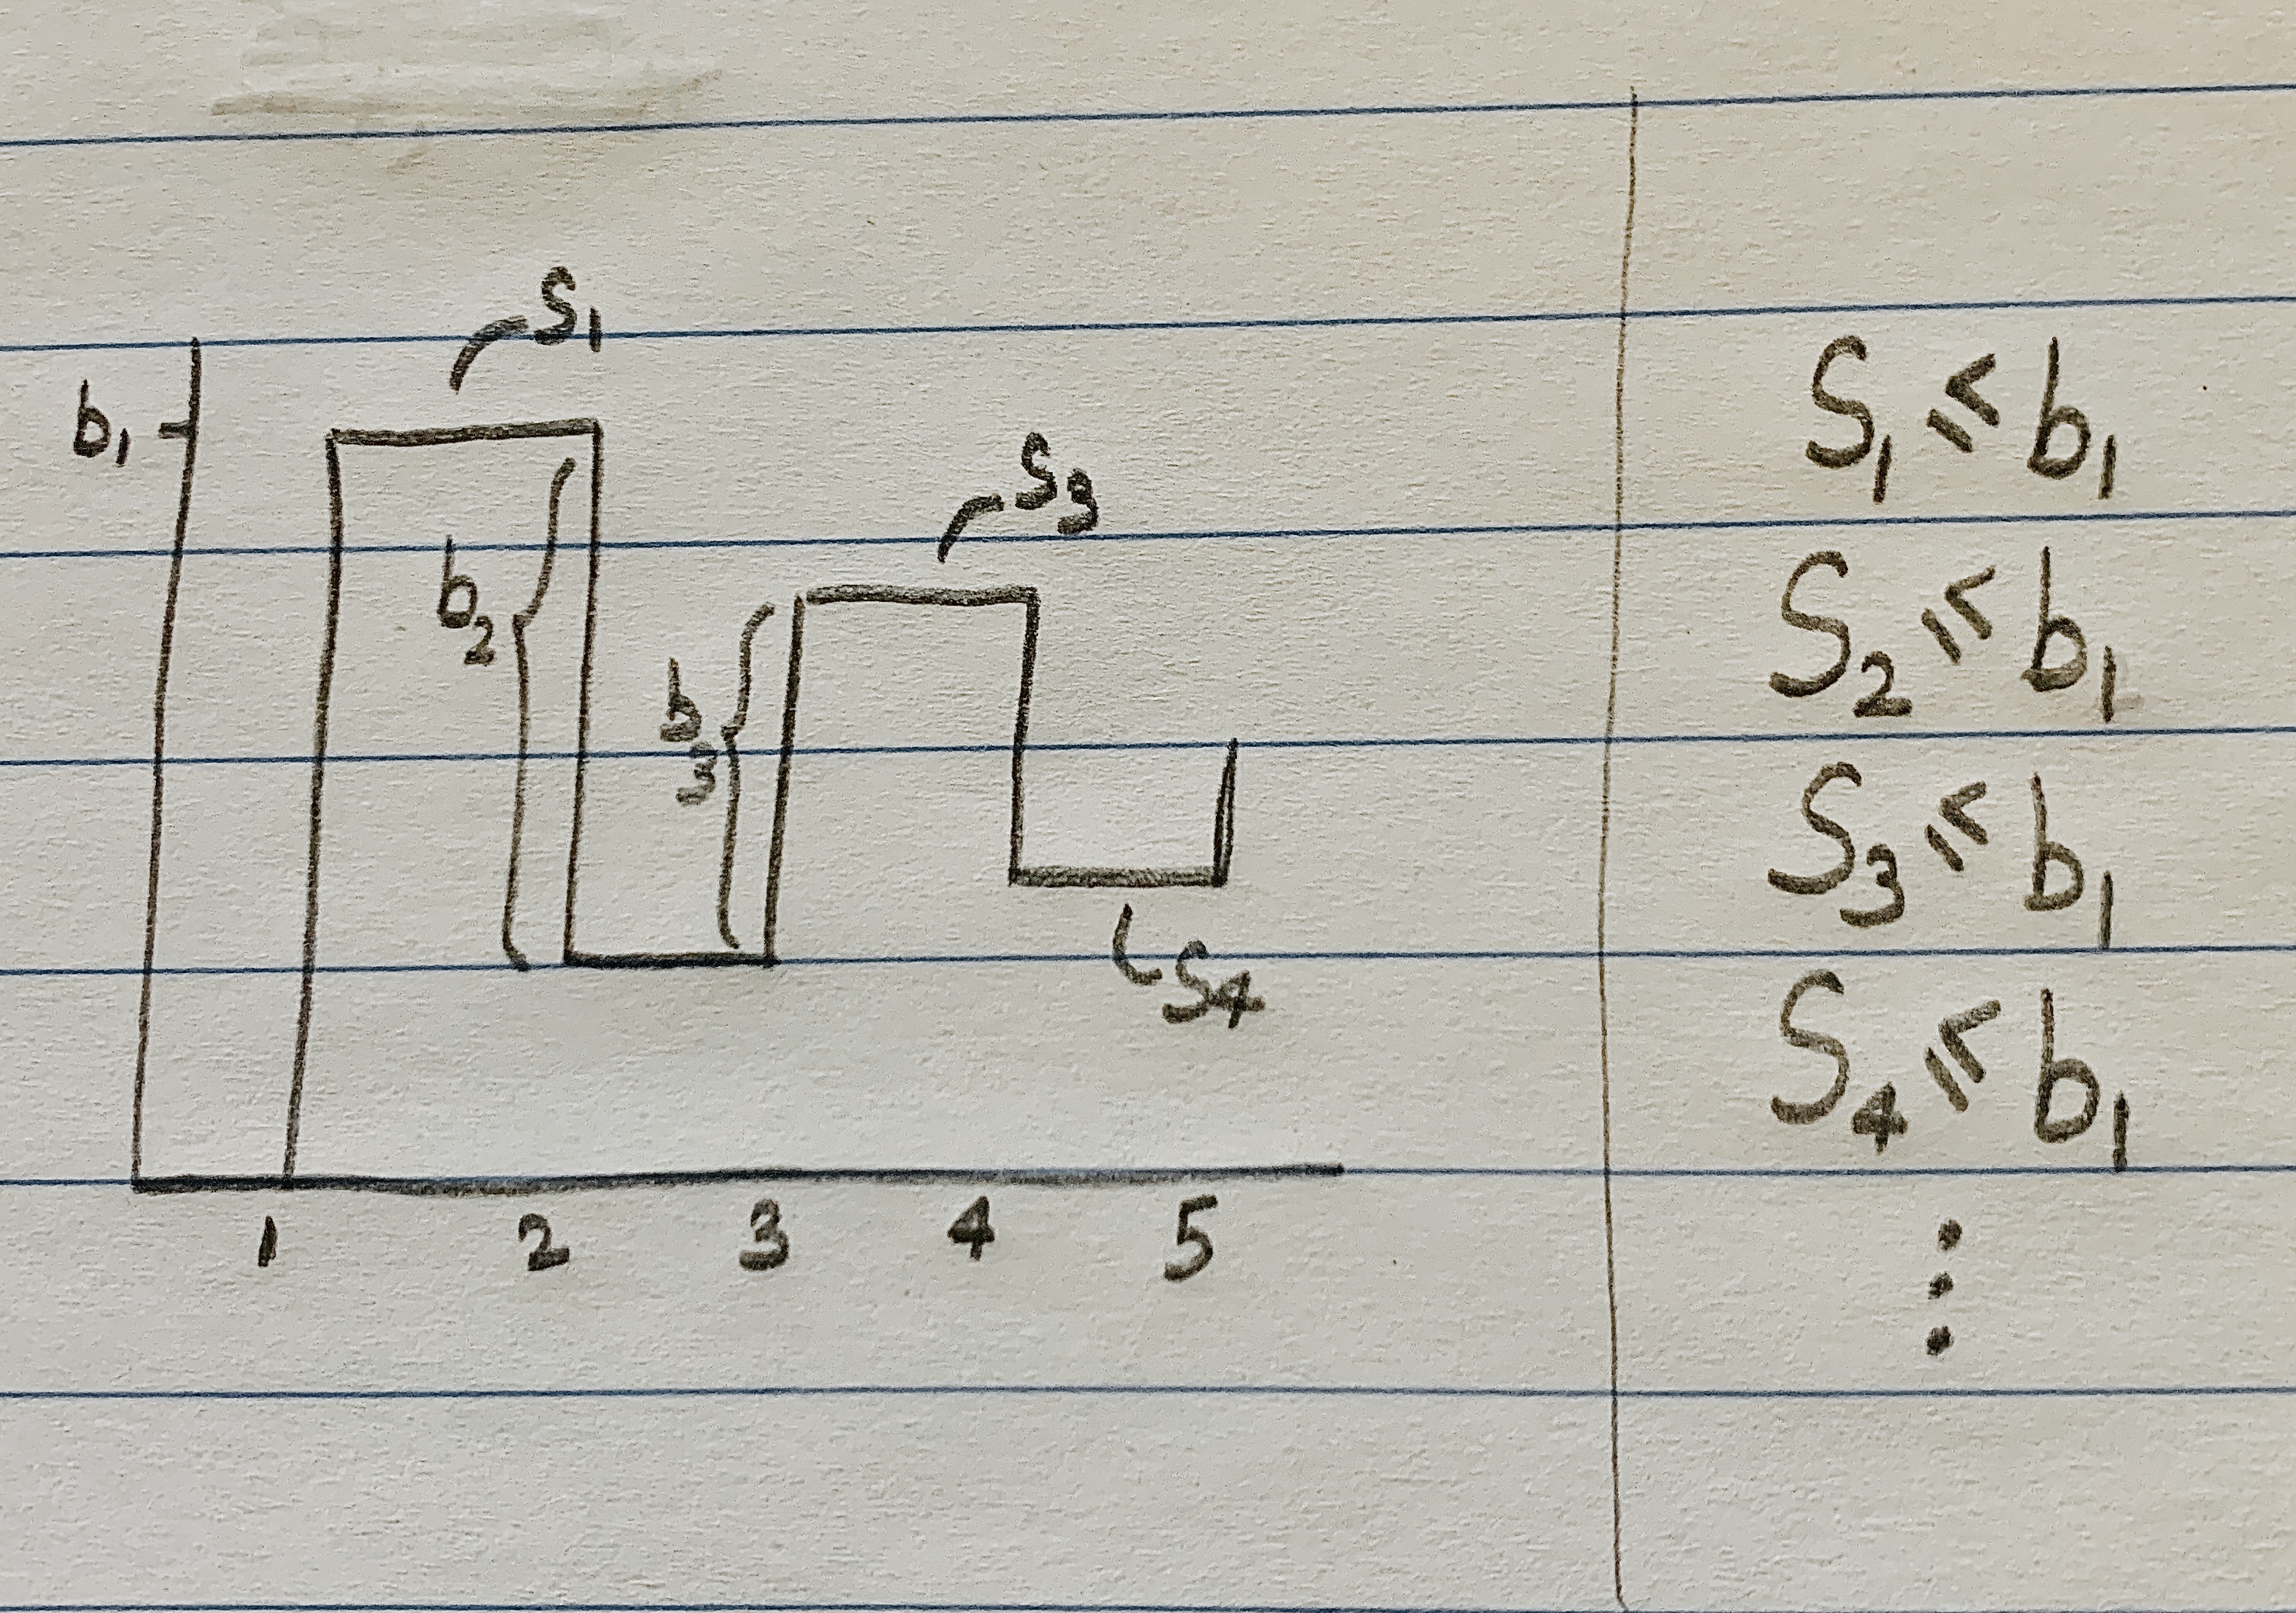 S₁
b₁
S₃
b₂
b₃
S₄
1 2 3 4 5
S₁ ≤ b₁
S₂ ≤ b₁
S₃ ≤ b₁
S₄ ≤ b₁
⋮